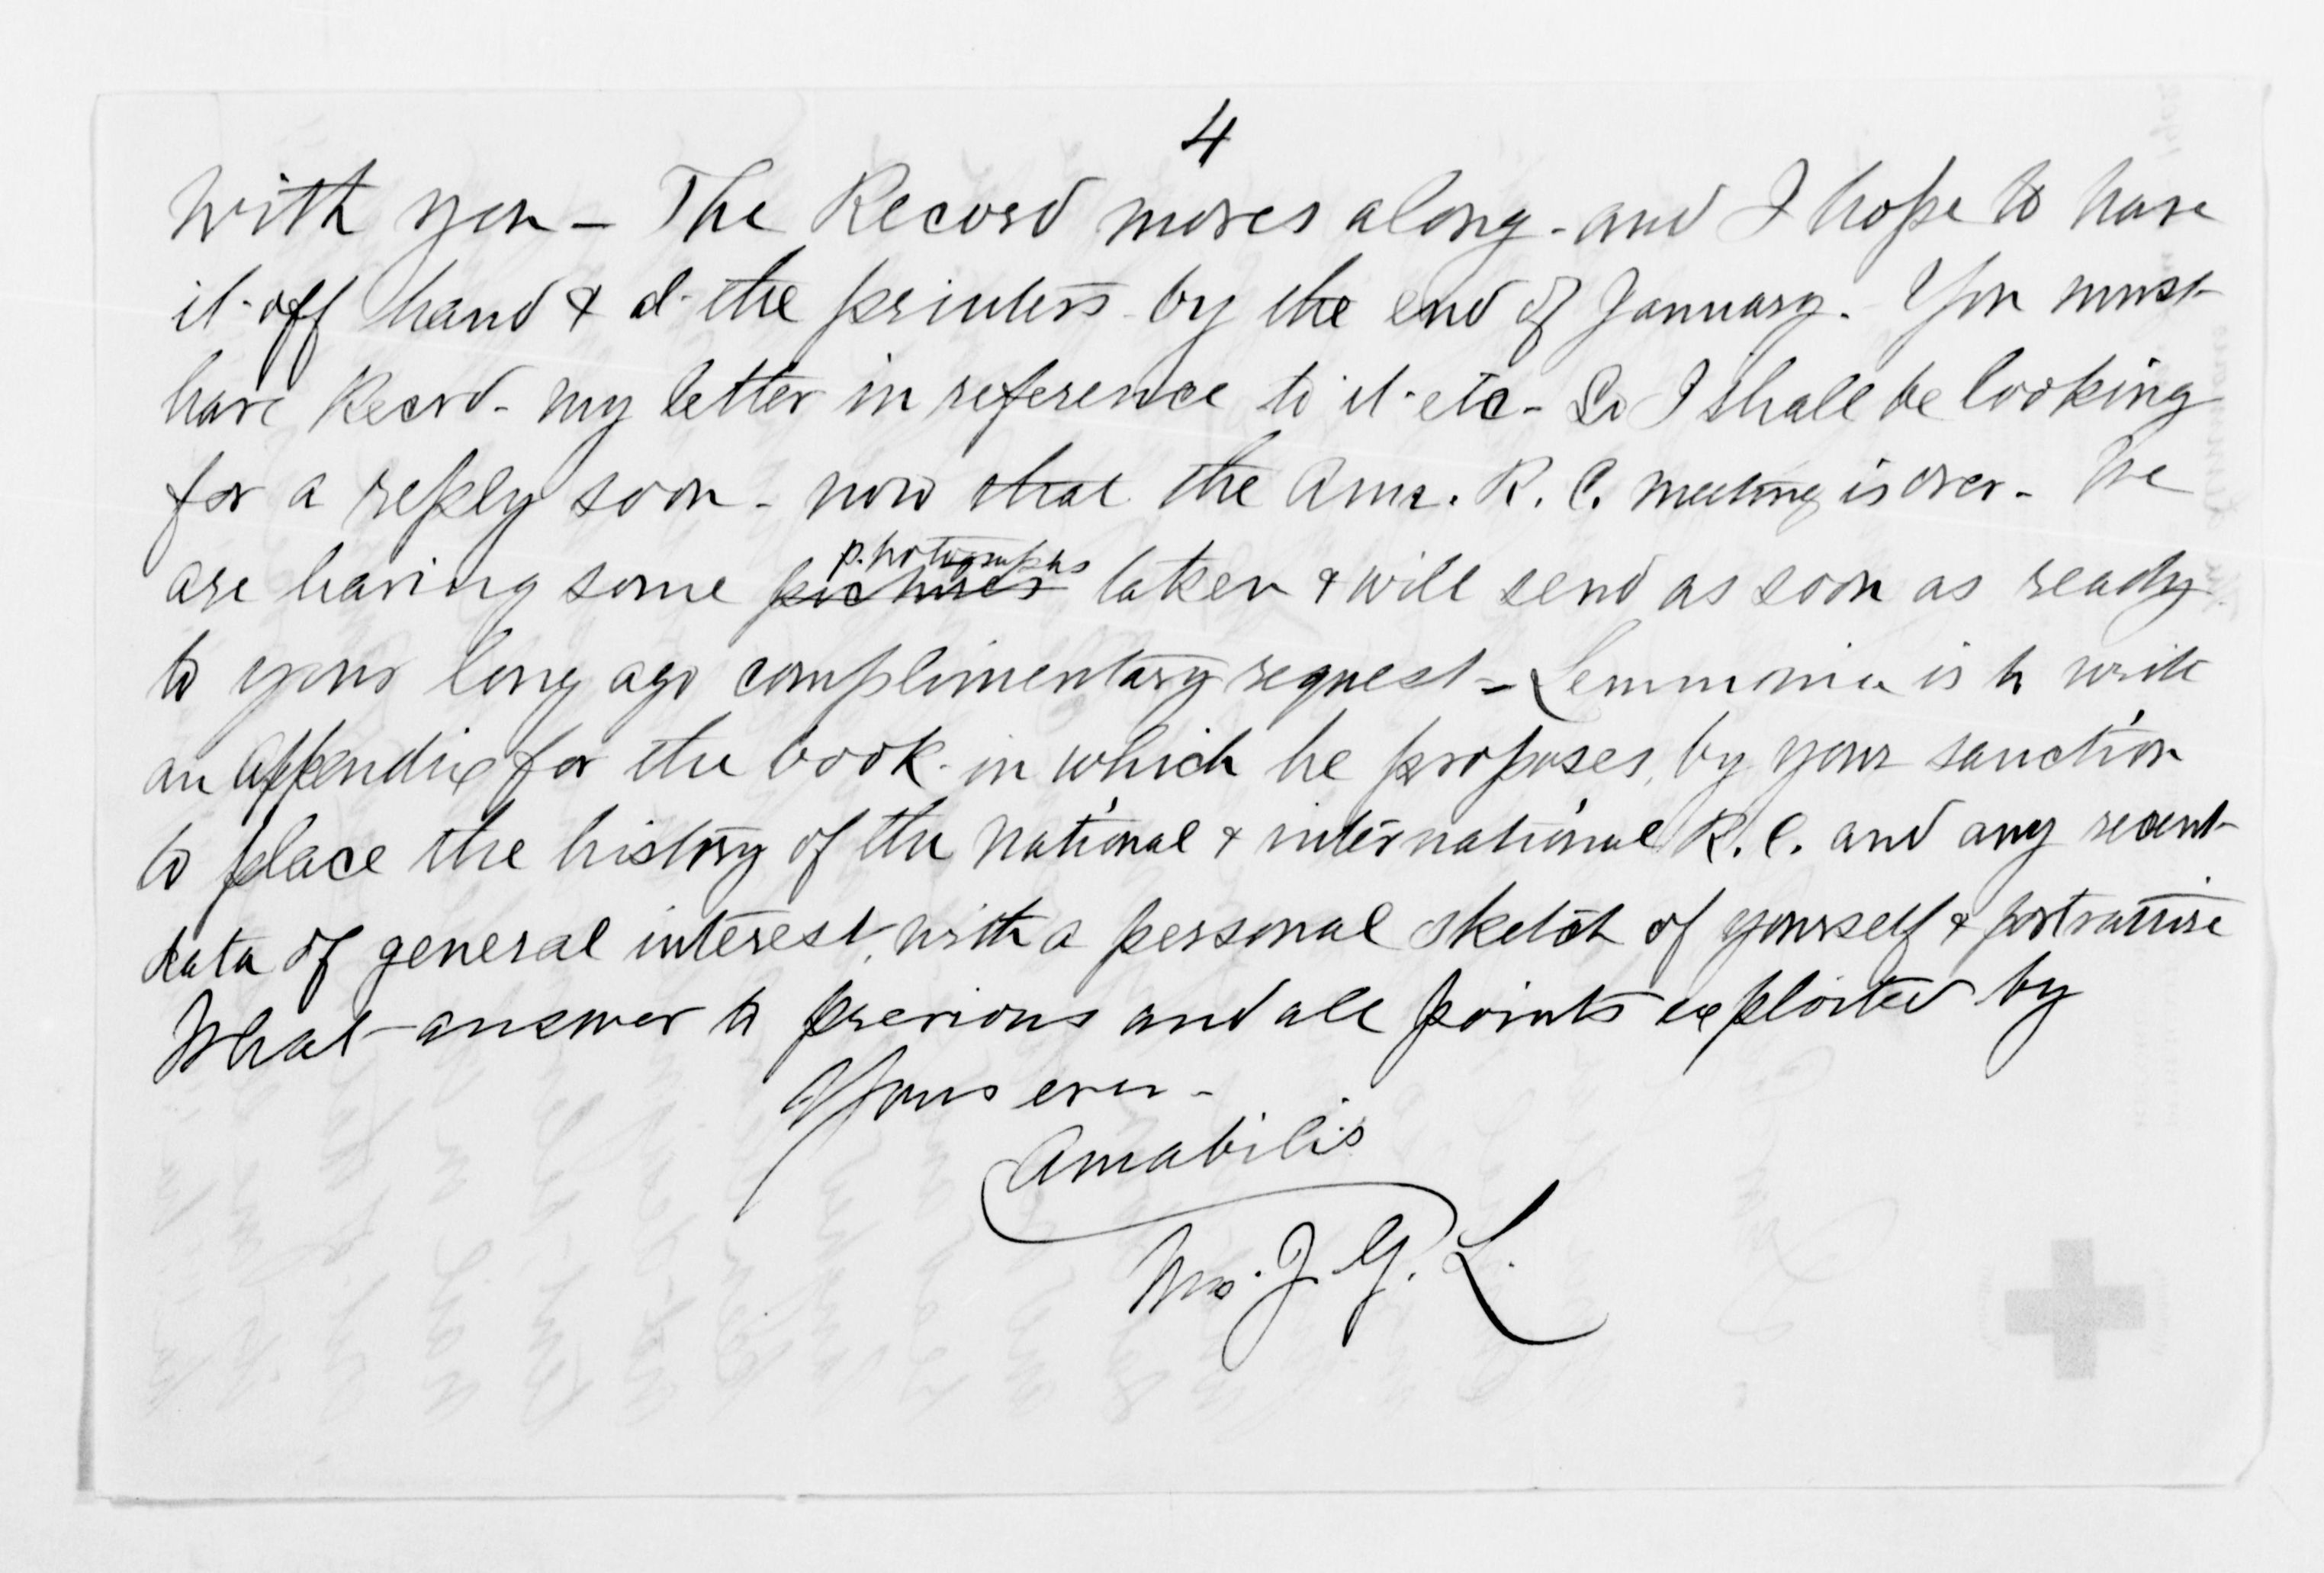 4
with you - The Record moves along - and I hope to have
it off hand & at the printers by the end of January. You must
have Recvd - my letter in reference to it - etc - So I shall be looking
for a reply soon - now that the Amr. R. C. meeting is over - We
are having some pictures photographs taken & will send as soon as ready
to your long ago complimentary request - Lemmonia is to write
an appendix for the book - in which he proposes, by your sanction
to place the history of the National & international R. C. and any recent
data of general interest, with a personal sketch of yourself & portraiture
What answer to previous and all points exploited by
Yours ever -
Amabilis
Mrs. J. G. L.